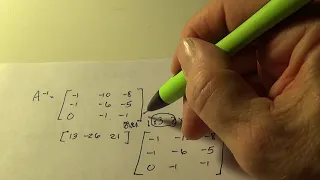 A⁻¹ = [ -1 -10 -8
-1 -6 -5
0 -1 -1 ]
[13 -26 21] [ -1 -8
-1 -6 -5
0 -1 -1 ]